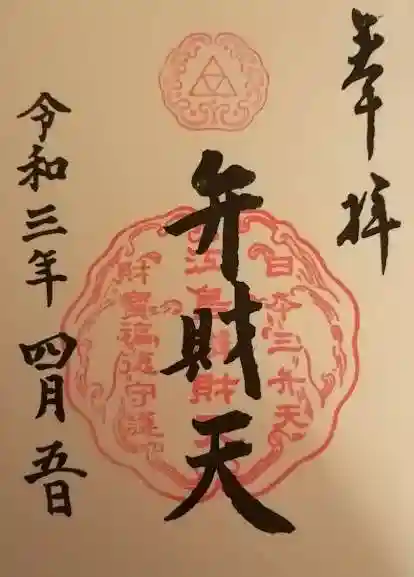 奉拝
日本三弁天
江島弁財天
財寳福徳守護
弁財天
令和三年四月五日